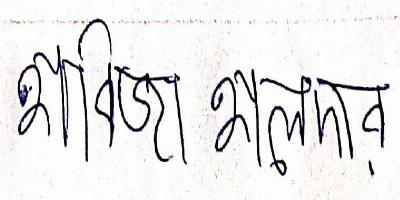 হাবিজা হালদার